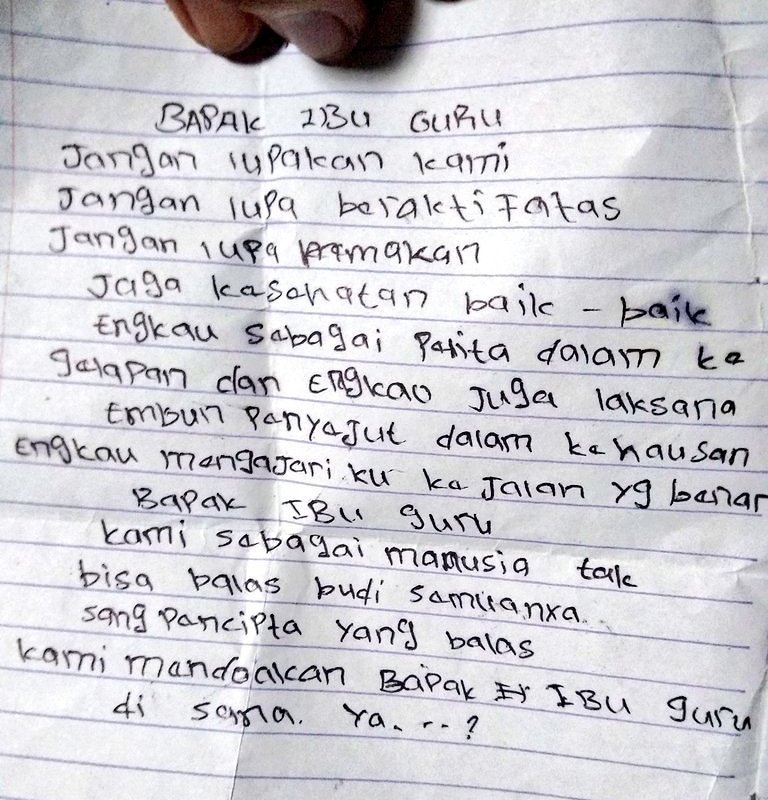 BAPAK IBU GURU
Jangan lupakan kami
Jangan lupa beraktifatas
Jangan lupa makan
Jaga kesehatan baik - baik
Engkau sebagai pelita dalam ke
gelapan dan Engkao Juga laksana
Embun penyejut dalam kehausan
Engkau mengajari ku ke Jalan yg benar
Bapak IBu guru
kami sebagai manusia tak
bisa balas budi semuanya.
sang Pencipta yang balas
kami mendoakan Bapak IBu guru
di sana. Ya. . . ?